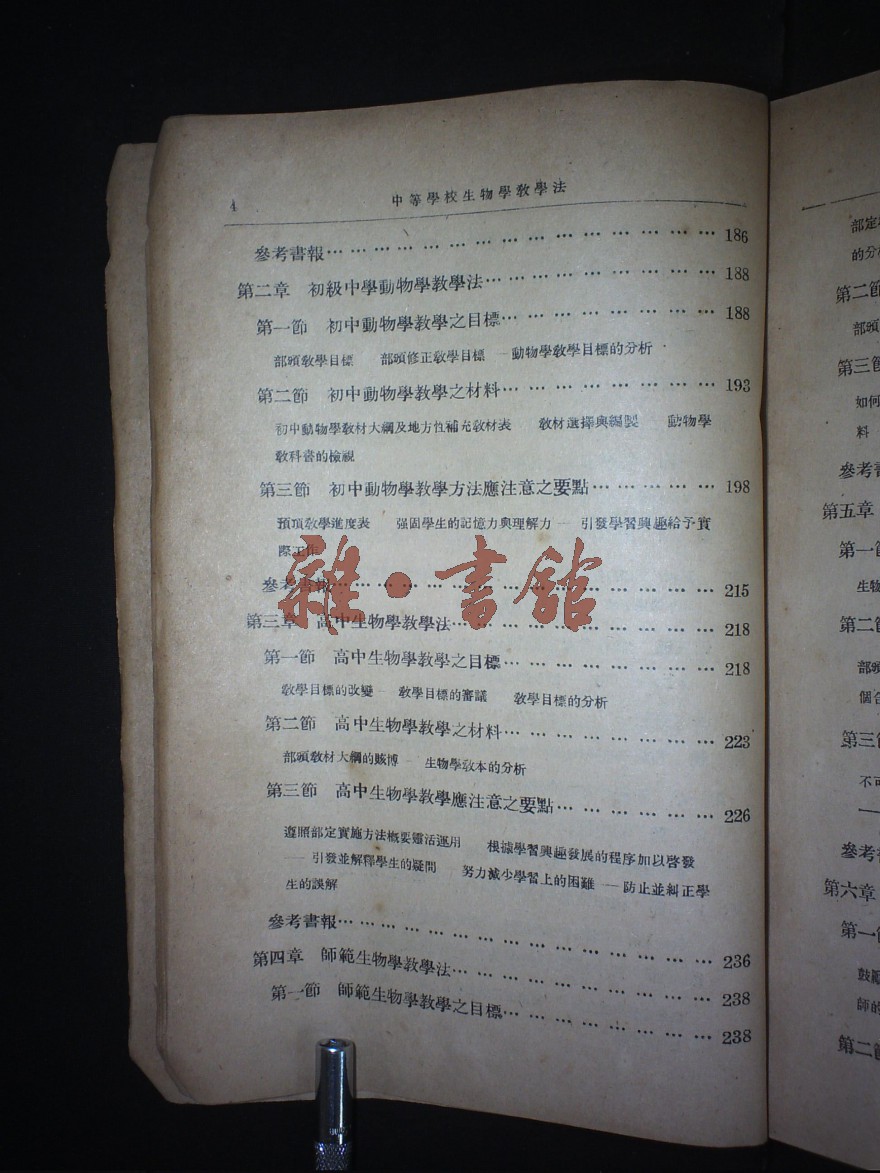 4
中等學校生物學敎學法
參考書報………………………………………… 186
第二章 初級中學動物學敎學法………………………… 188
第一節 初中動物學敎學之目標………………………… 188
部頒敎學目標 部頒修正敎學目標 — 動物學敎學目標的分析
第二節 初中動物學敎學之材料………………………… 193
初中動物學敎材大綱及地方性補充敎材表 敎材選擇與編製 動物學
敎科書的檢視
第三節 初中動物學敎學方法應注意之要點…………… 198
預項敎學進度表 强固學生的記憶力與理解力 — 引發學習興趣給予實
際工作
參考書報………………………………………… 215
第三章 高中生物學敎學法………………………… 218
第一節 高中生物學敎學之目標………………………… 218
敎學目標的改變 — 敎學目標的審議 敎學目標的分析
第二節 高中生物學敎學之材料………………………… 223
部頒敎材大綱的賅博 — 生物學敎本的分析
第三節 高中生物學敎學應注意之要點………………… 226
遵照部定實施方法概要靈活運用 根據學習興趣發展的程序加以啓發
— 引發並解釋學生的疑問 努力減少學習上的困難 — 防止並糾正學
生的誤解
參考書報………………………………………… 236
第四章 師範生物學敎學法………………………… 238
第一節 師範生物學敎學之目標………………………… 238
雜·書館
部定
的分
第二節
部頒
第三節
如何
料
參考書
第五章
第一節
生物
第二節
部頒
個合
第三節
不可
—
參考書
第六章
第一節
鼓勵
師的
第二節